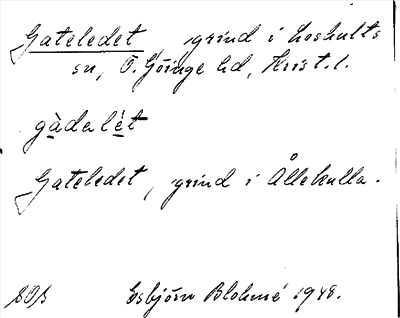 Gateledet, grind i Loshults
sn, Ö. Göinge hd, Krist. l.
gàdalét
Gateledet, grind i Ållekulla.
Esbjörn Blohmé 1948.